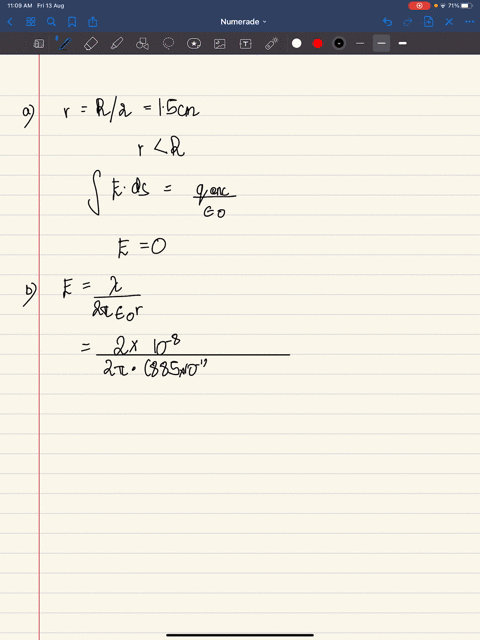 11:09 AM Fri 13 Aug
71%
Numerade
a) r = R/2 = 1.5cm
r < R
∫ E · ds = q enc / ε0
E = 0
b) E = λ / 2π ε0 r
= 2 × 10^-8 / 2π · (885×10